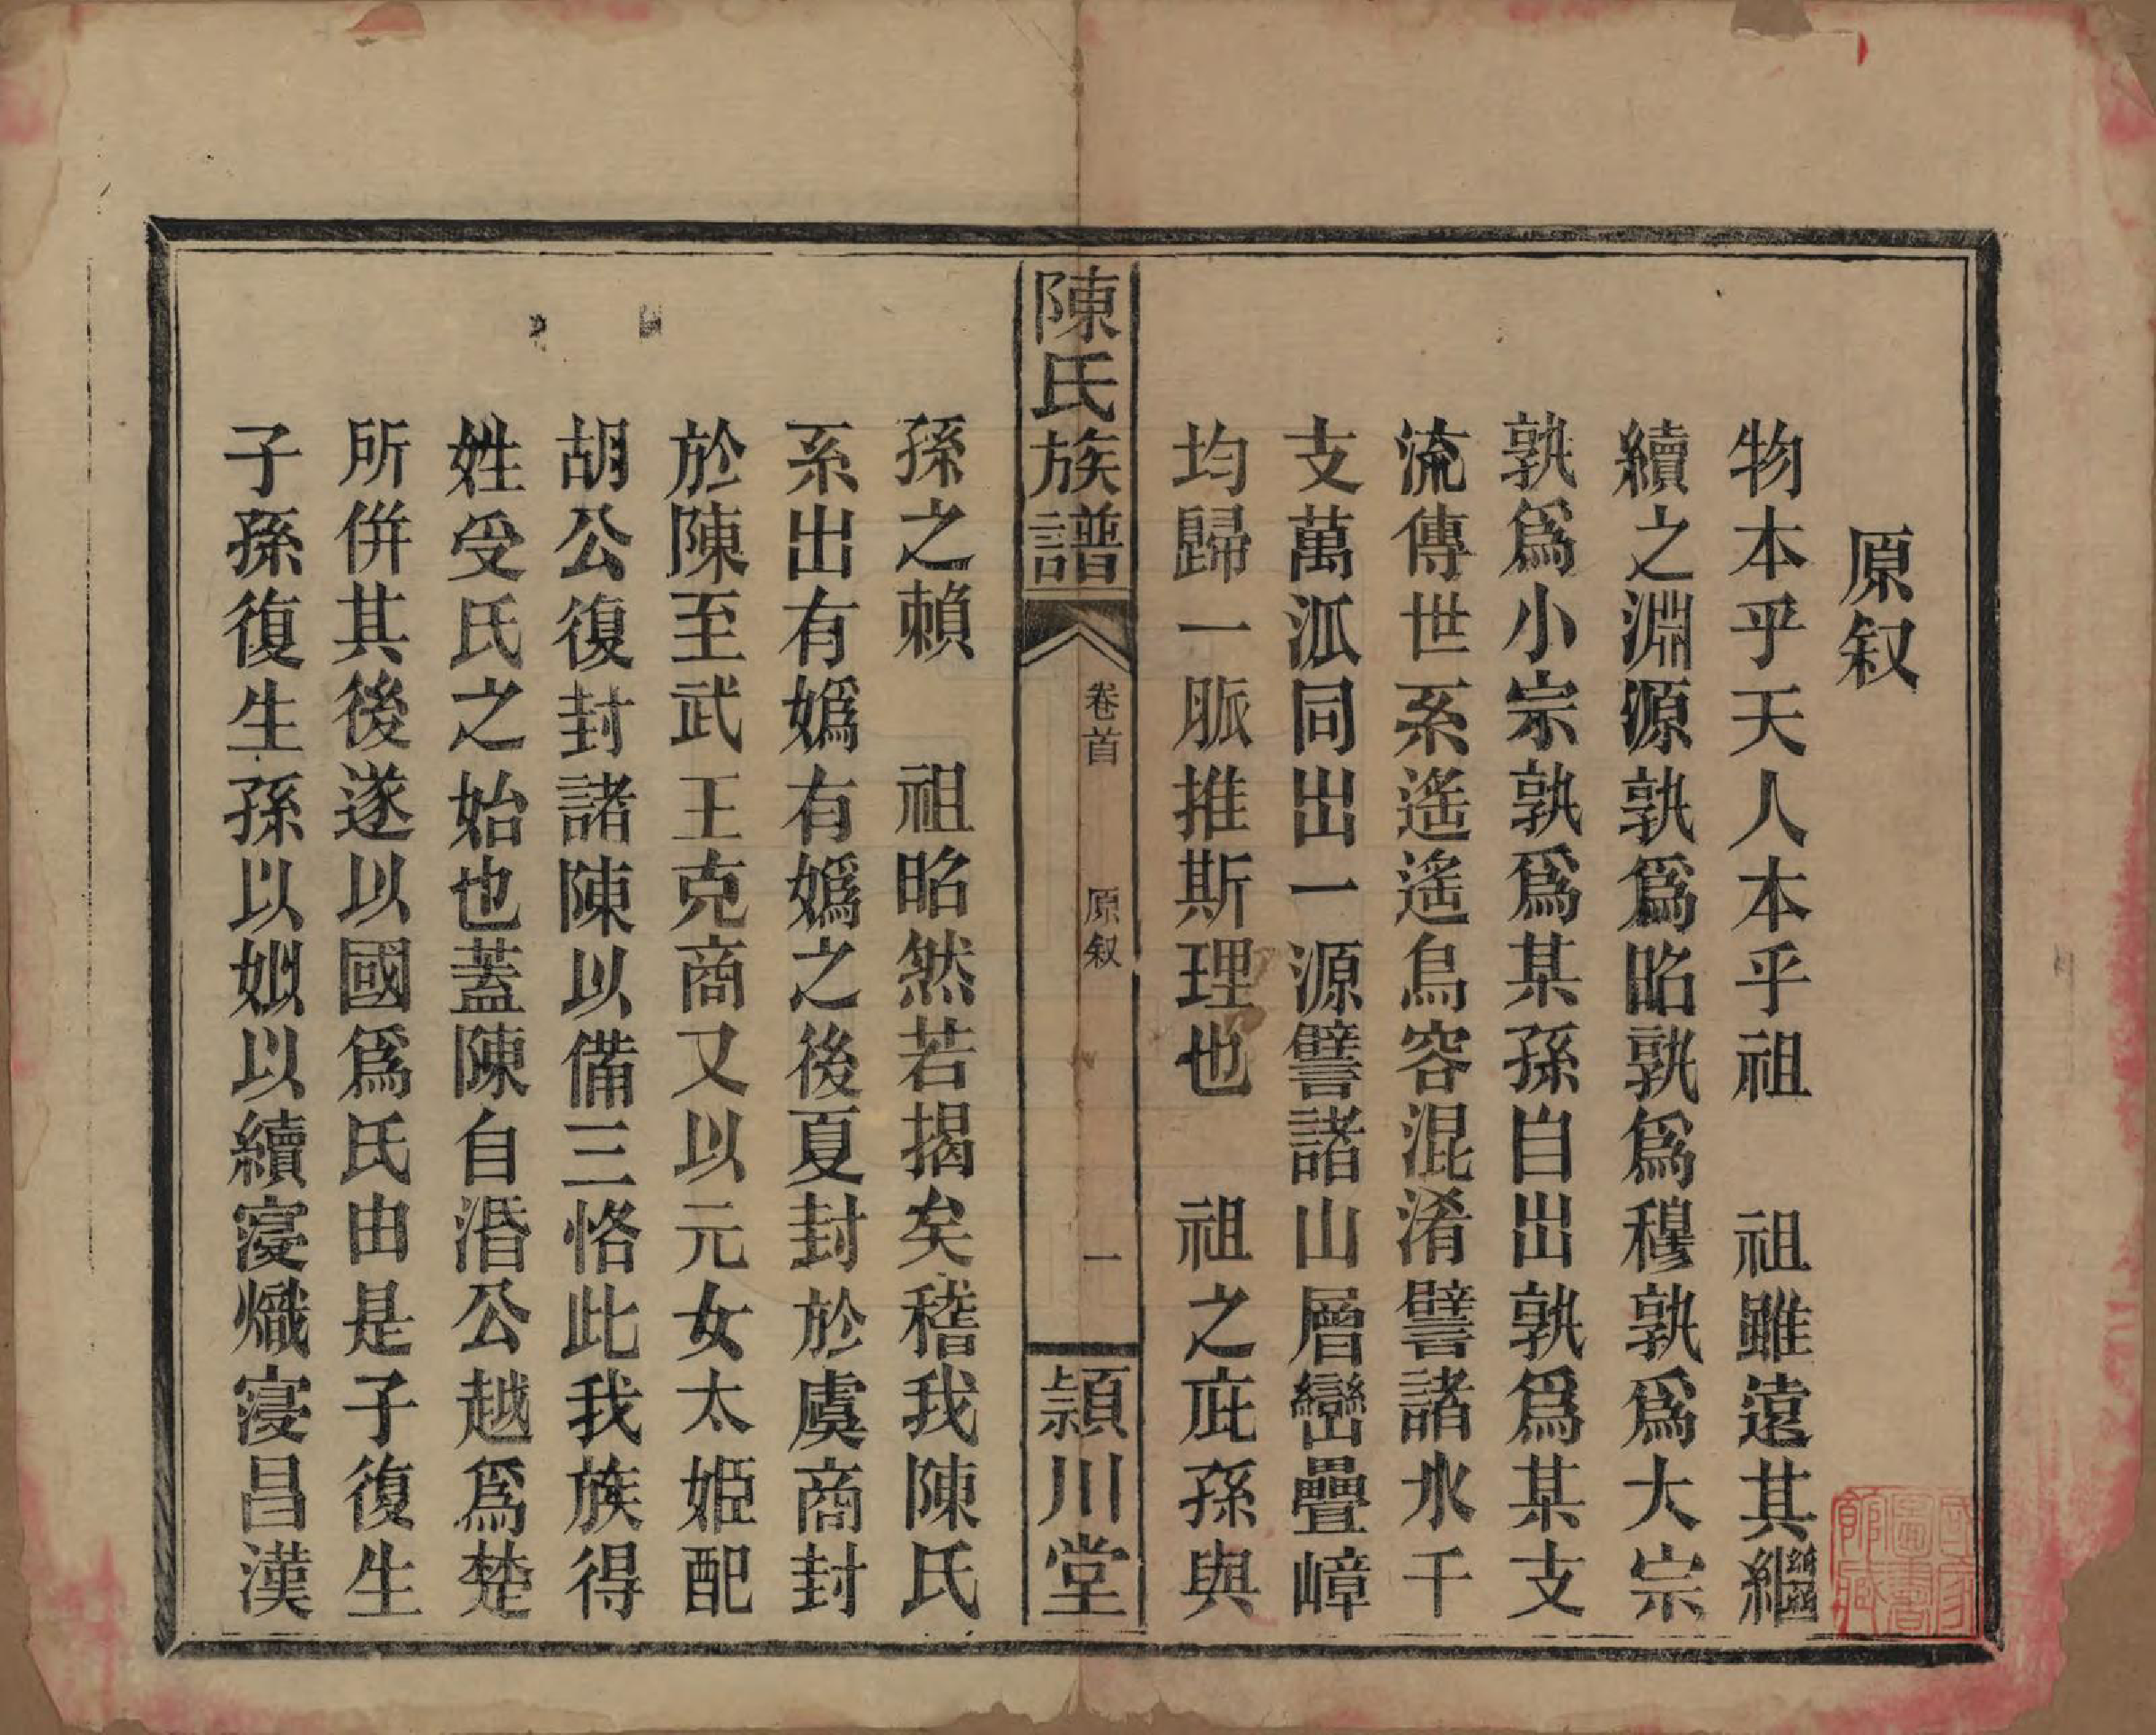 原叙
物本乎天人本乎祖　祖雖遠其繼
續之淵源孰爲昭孰爲穆孰爲大宗
孰爲小宗孰爲某孫自出孰爲某支
流傳世系遙遙鳥容混淆譬諸水千
支萬派同出一源譬諸山層巒疊嶂
均歸一脈推斯理也　祖之庇孫與
陳氏族譜
卷首　原叙　一
頴川堂
孫之賴　祖昭然若揭矣稽我陳氏
系出有嬀有嬀之後夏封於虞商封
於陳至武王克商又以元女太姬配
胡公復封諸陳以備三恪此我族得
姓受氏之始也蓋陳自湣公越爲楚
所併其後遂以國爲氏由是子復生
子孫復生孫以姒以續寖熾寖昌漢
國家圖書館藏